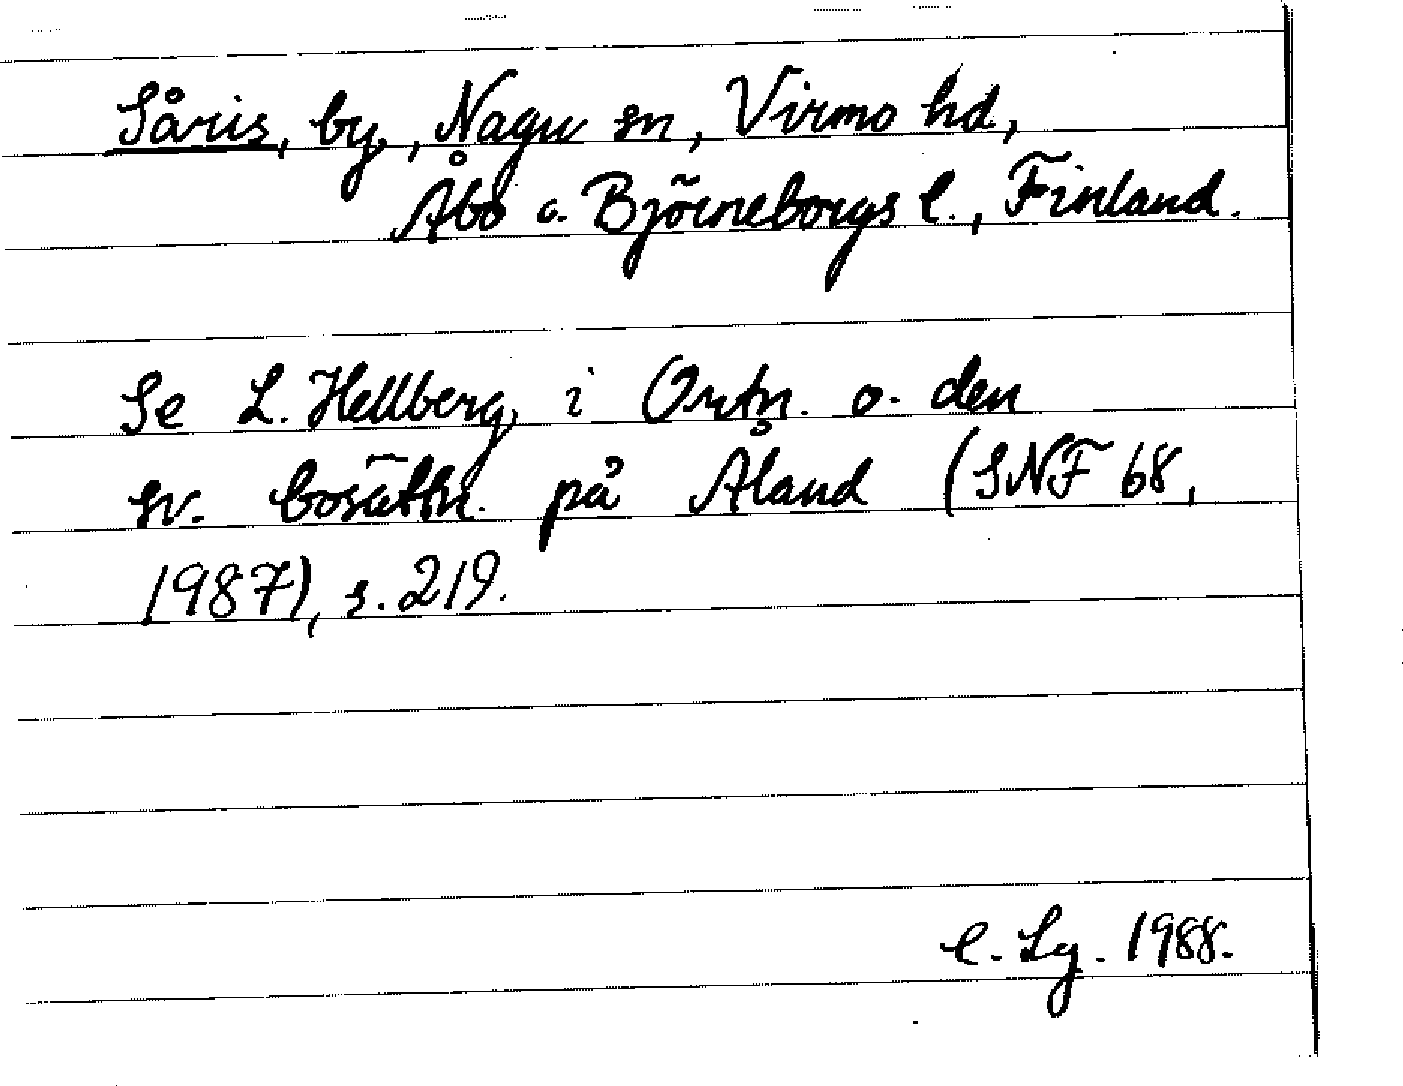 Såris, by, Nagu sn, Virmo hd,
Åbo o. Björneborgs l., Finland.
Se L. Hellberg, i Ortn. o. den
sv. bosättn. på Åland (SNF 68,
1987), s. 219.
C. Lg. 1988.